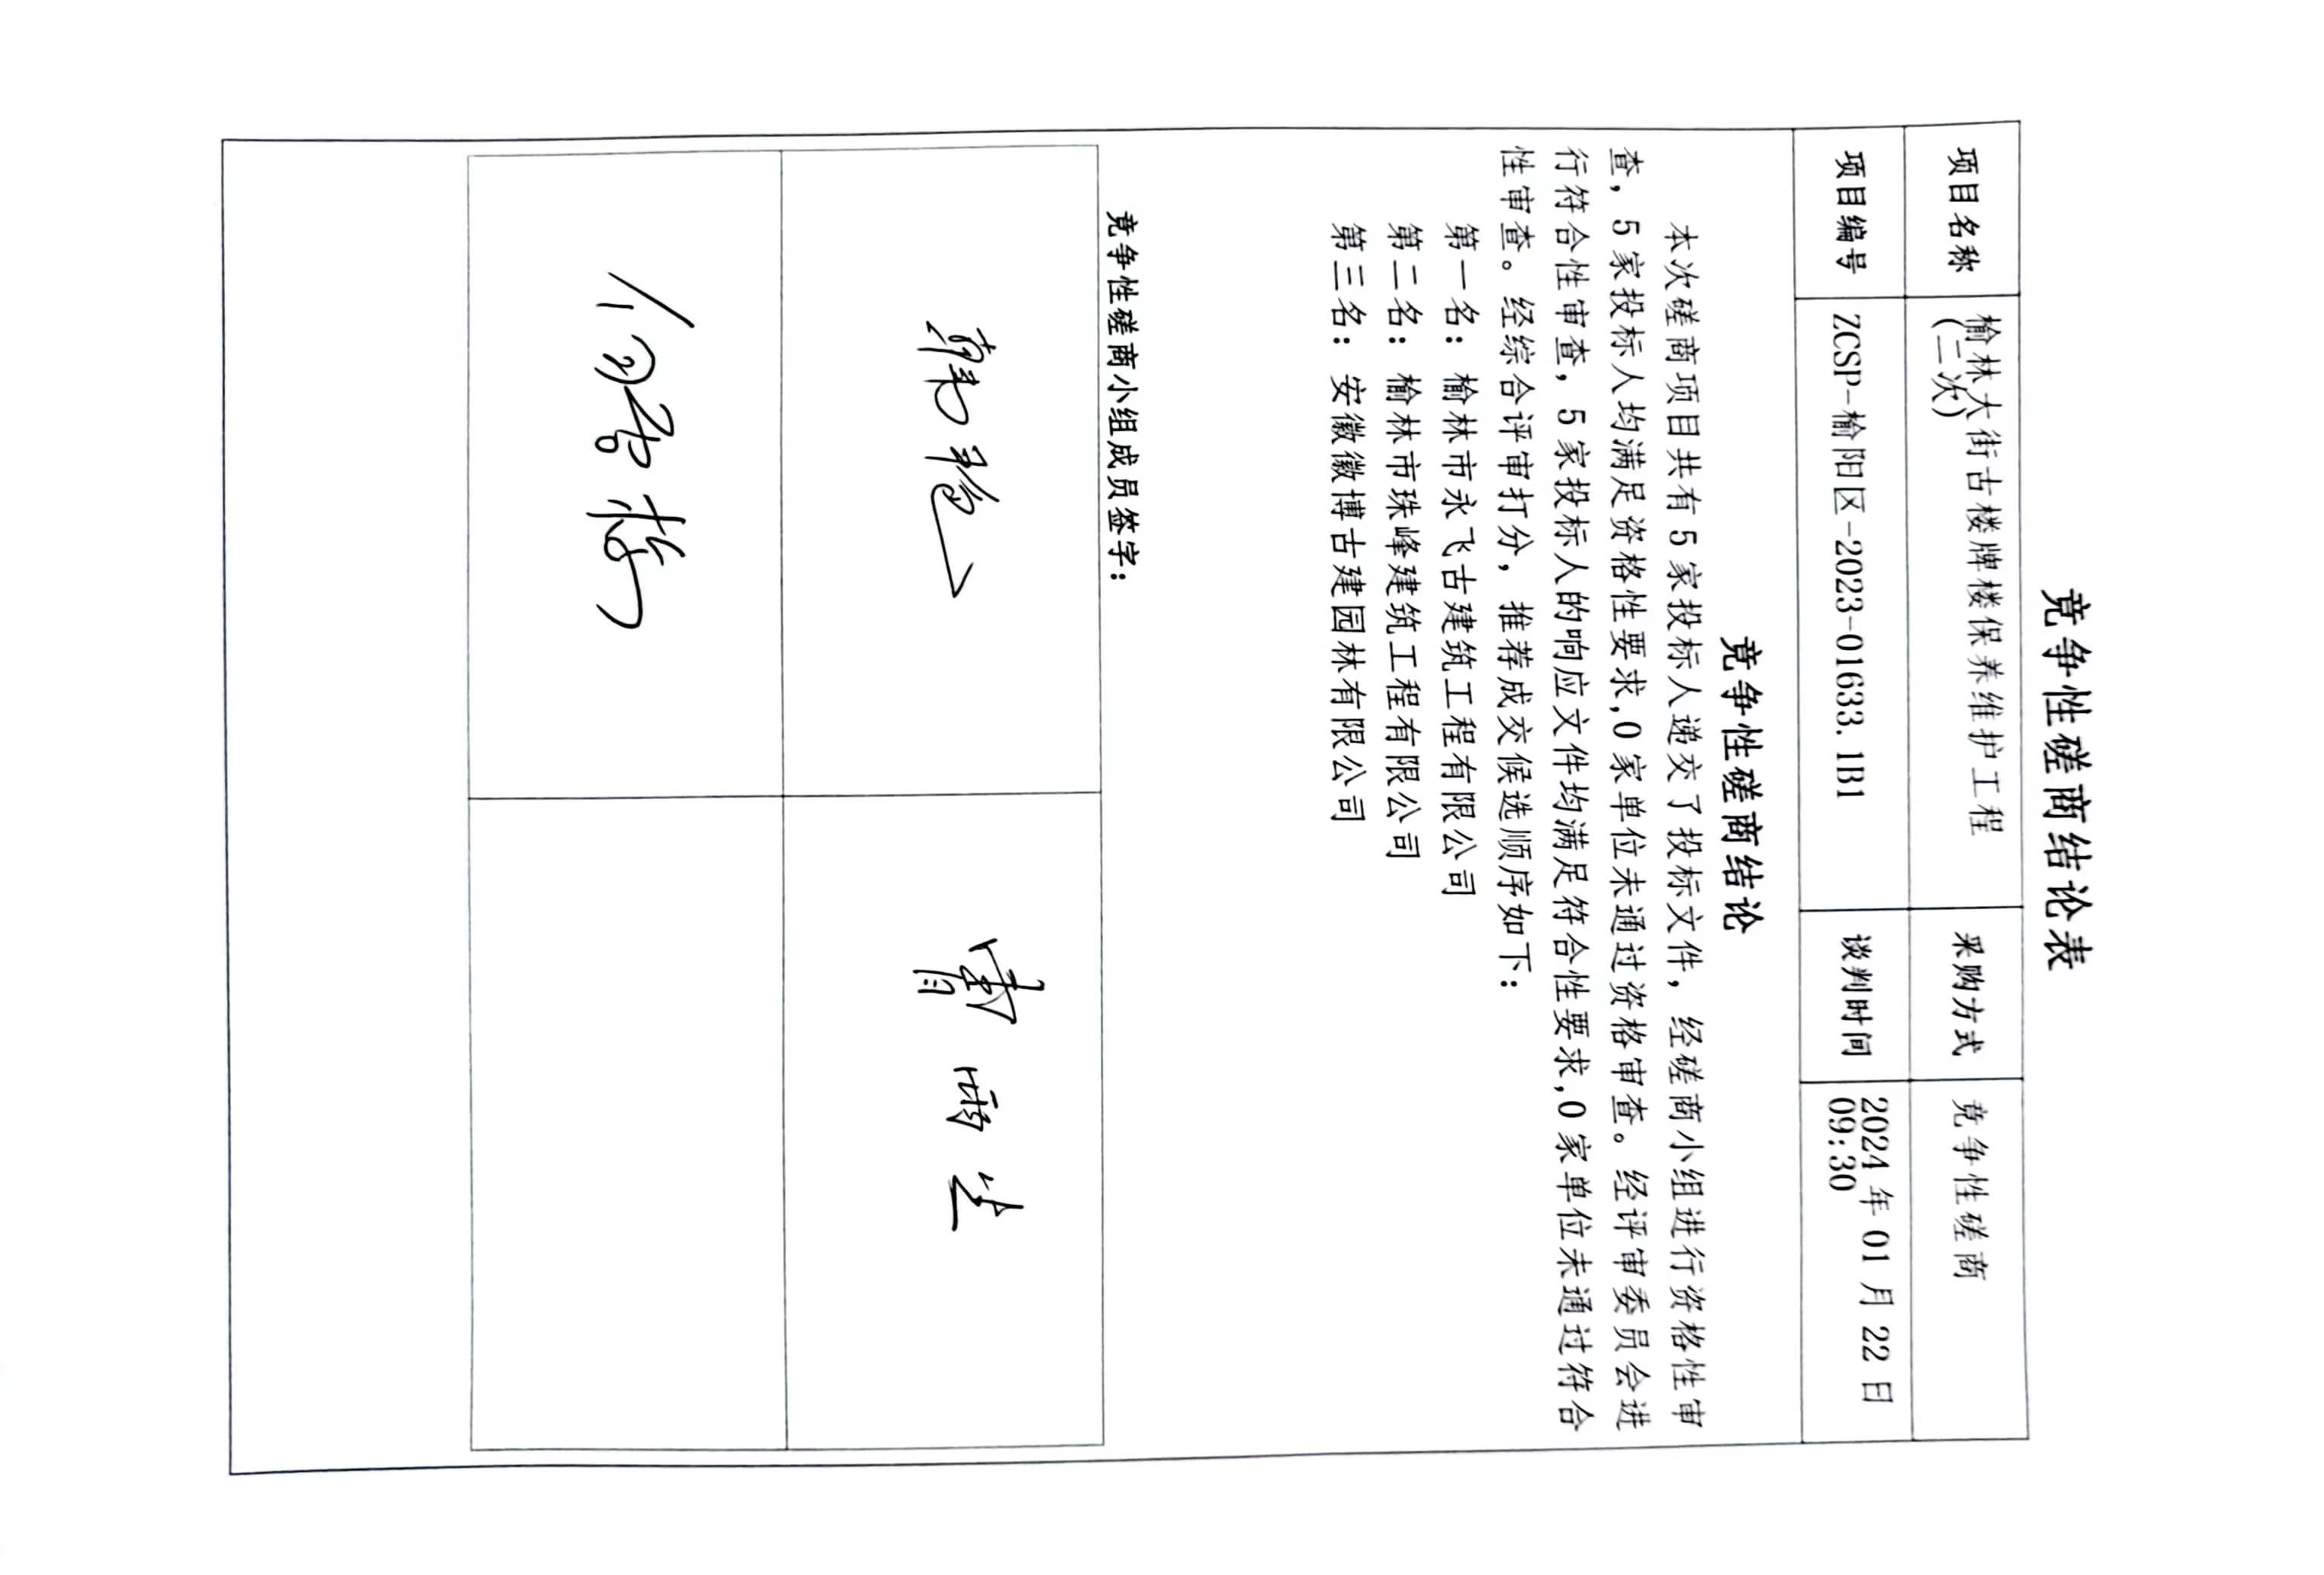 竞争性磋商结论表
项目名称
榆林大街古楼牌楼保养维护工程
(二次)
采购方式
竞争性磋商
项目编号
ZCSP-榆阳区-2023-01633.1B1
谈判时间
2024 年 01 月 22 日
09:30
竞争性磋商结论
本次磋商项目共有 5 家投标人递交了投标文件，经磋商小组进行资格性审
查，5 家投标人均满足资格性要求,0 家单位未通过资格审查。经评审委员会进
行符合性审查，5 家投标人的响应文件均满足符合性要求,0 家单位未通过符合
性审查。经综合评审打分，推荐成交候选顺序如下：
第一名：榆林市永飞古建筑工程有限公司
第二名：榆林市珠峰建筑工程有限公司
第三名：安徽徽博古建园林有限公司
竞争性磋商小组成员签字：